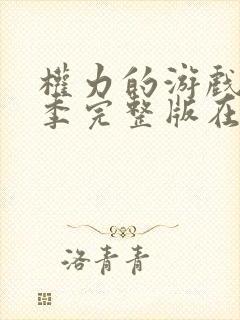 權力的游戲
季完整版在
洛青青